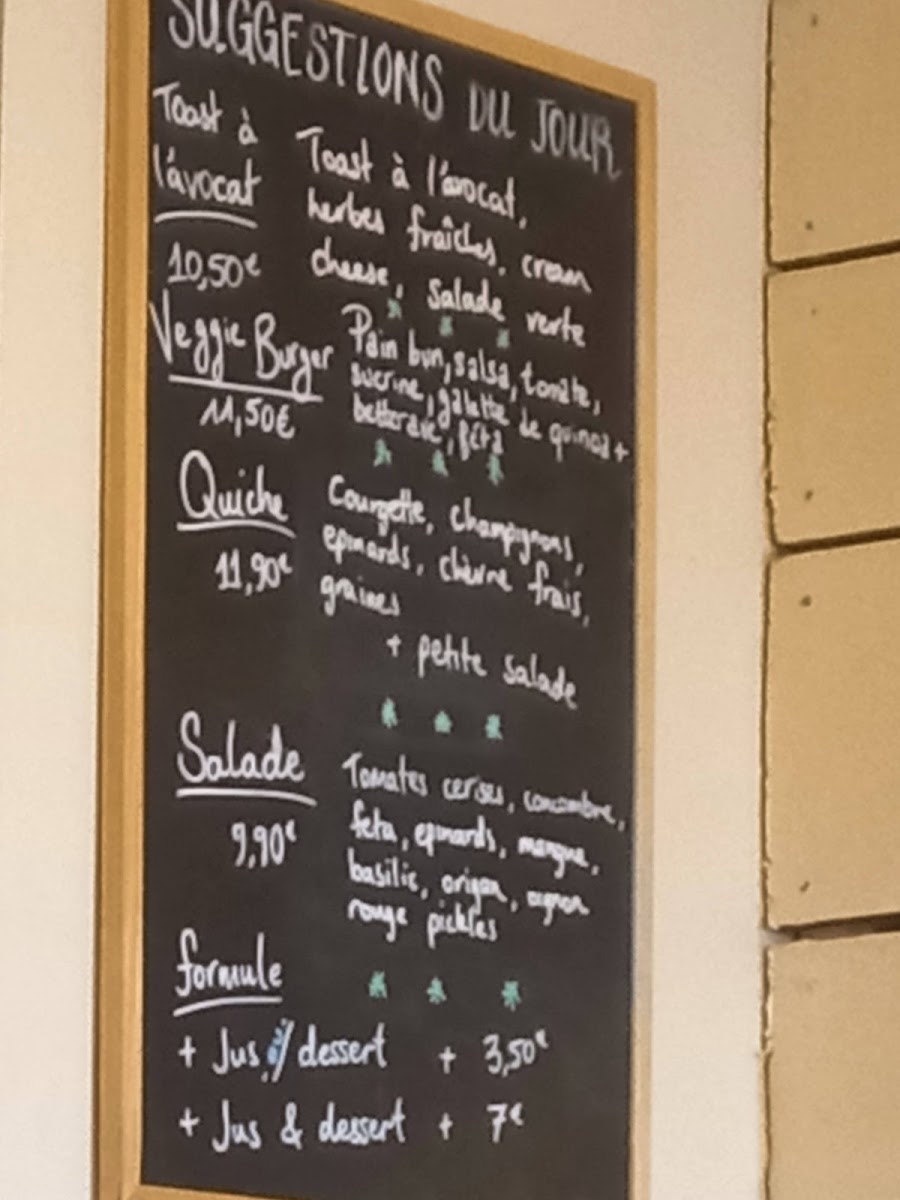 SUGGESTIONS DU JOUR
Toast à
l'avocat
10,50€
Toast à l'avocat,
herbes fraîches, cream
cheese, salade verte
Veggie Burger
11,50€
Pain bun, salsa, tomate,
sucrine, galette de quinoa +
betterave, féta
Quiche
11,90€
Courgette, champignons,
epinards, chèvre frais,
graines
+ petite salade
Salade
9,90€
Tomates cerises, concombre,
feta, epinards, mangue,
basilic, origan, oignon
rouge pickles
formule
+ Jus / dessert + 3,50€
+ Jus & dessert + 7€